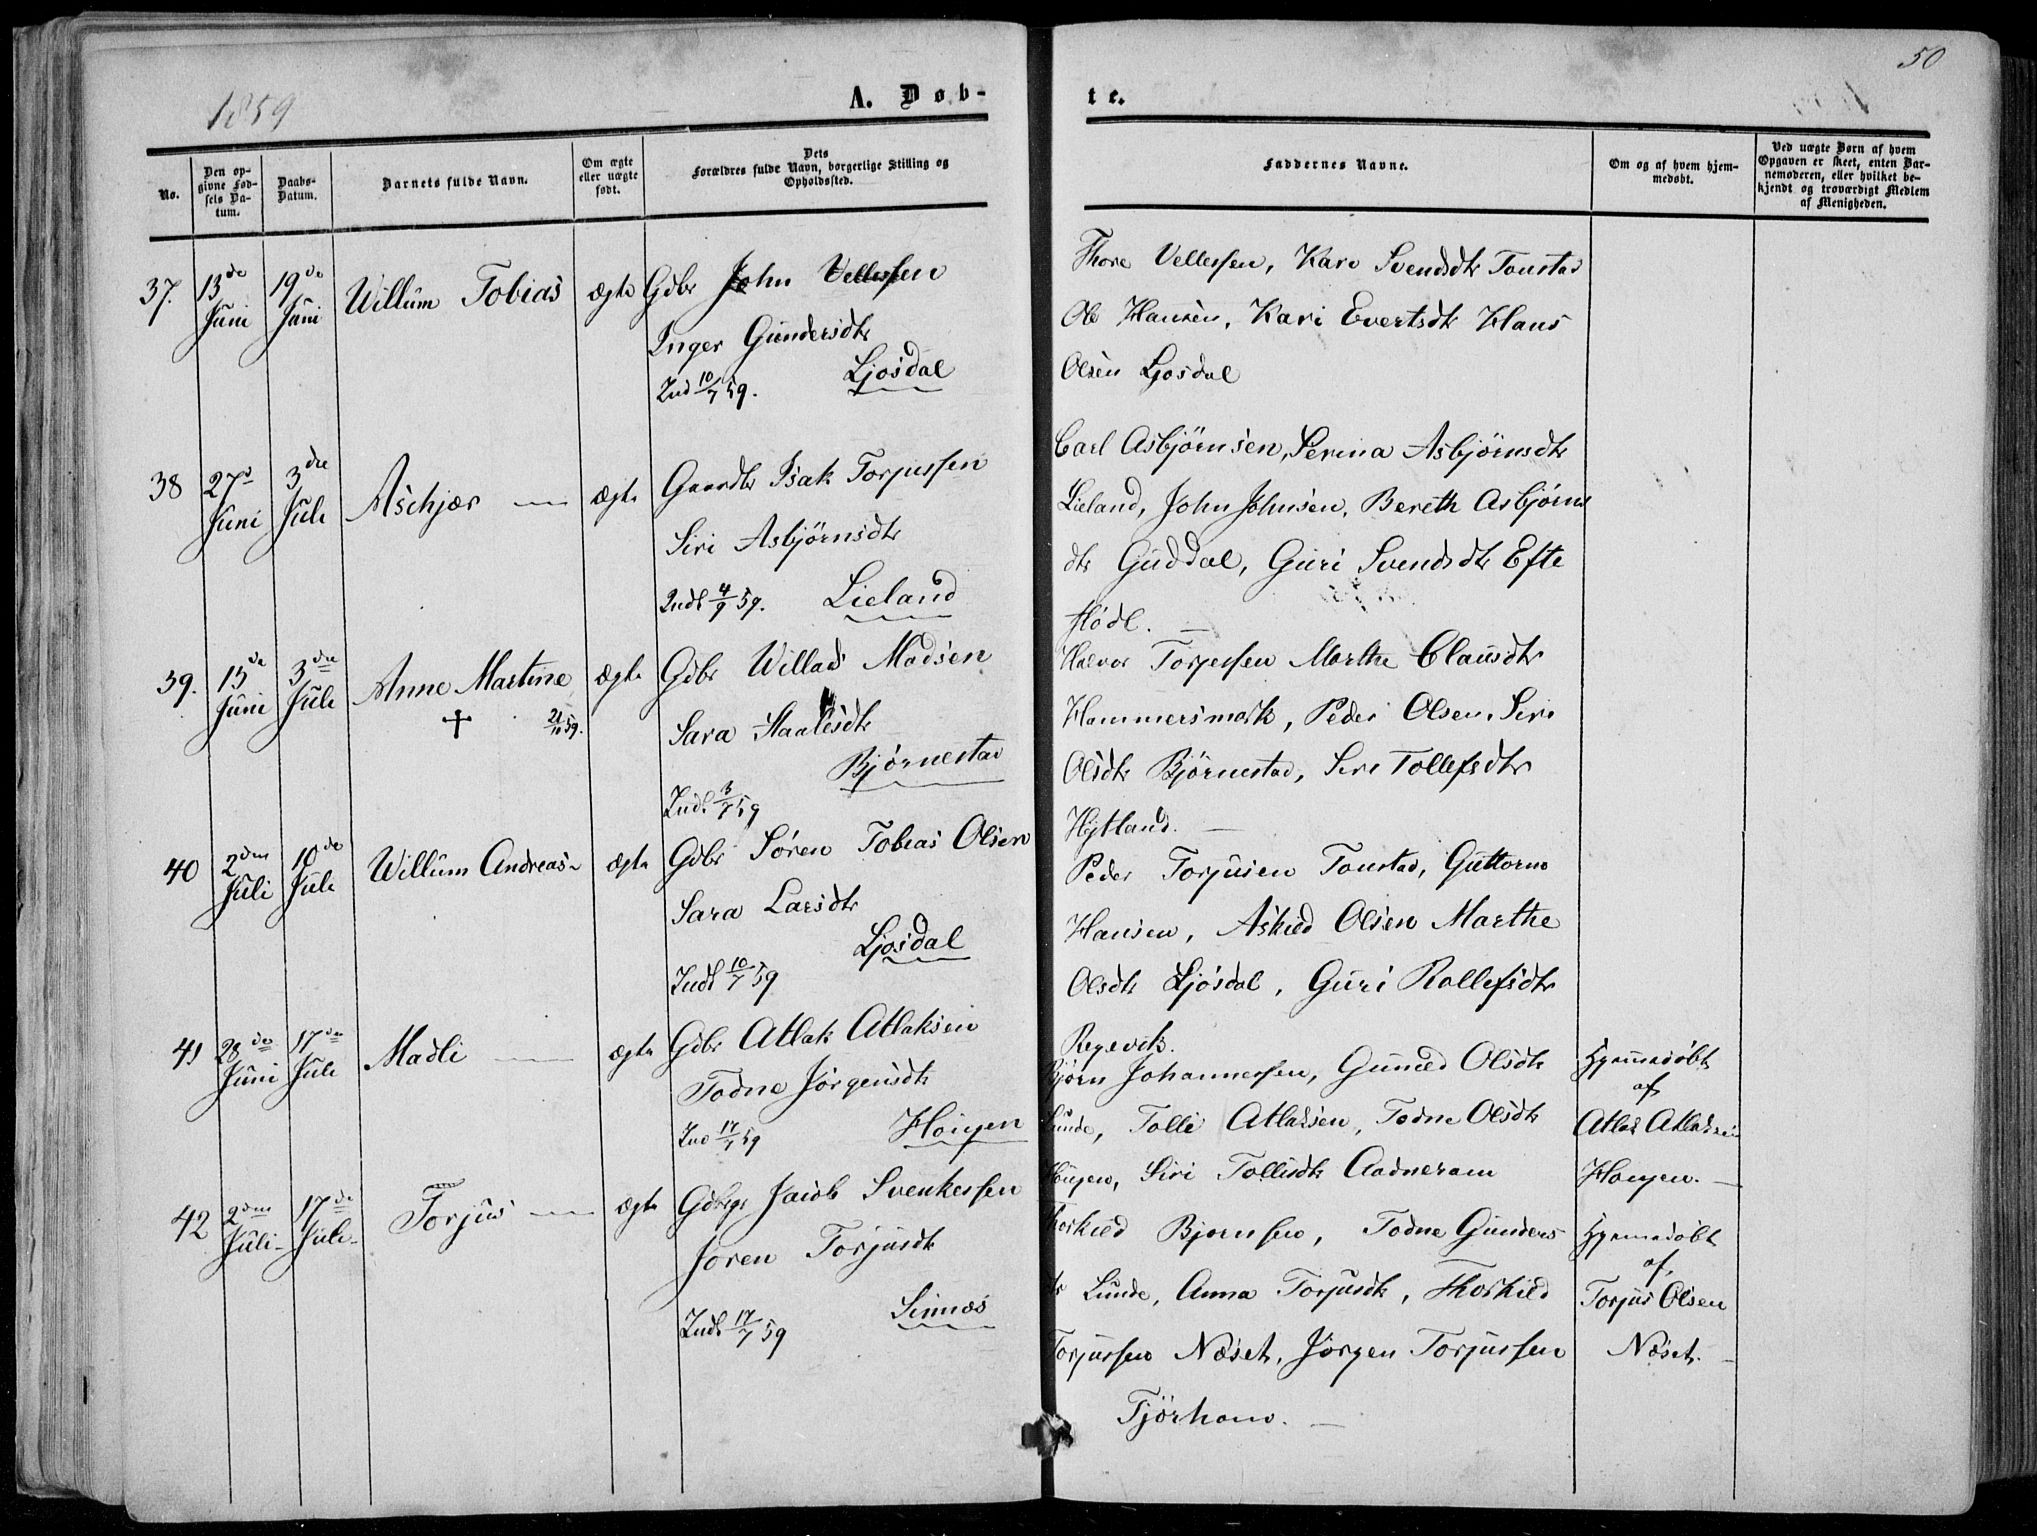 50
1859
A. Døb-
te.
No.
Den op-
givne Fød-
sels Da-
tum.
Daabs-
Datum.
Barnets fulde Navn.
Om ægte
eller uægte
født.
Dets
Forældres fulde Navn, borgerlige Stilling og
Opholdssted.
Faddernes Navne.
Om og af hvem hjem-
medøbt.
Ved uægte Børn af hvem
Opgaven er skeet, enten Bar-
nemoderen, eller hvilket be-
kjendt og troværdigt Medlem
af Menigheden.
37. 13de Juni 19de Juni Willum Tobias ægte Gdbr John Vellessen
Inger Gundersdtr
Ljosdal
Ind 10/7 59.
Thore Vellessen, Kare Svendsdtr Tonstad
Ole Hansen, Kari Evertsdtr Klaus
Olsen Ljosdal
38 27d Juni 3die Juli Aschjær — ægte Gaardbr Isak Torjussen
Siri Asbjørnsdtr
Indl 4/9 59. Lieland
Carl Asbjørnsen, Serina Asbjørnsdtr
Lieland, John Johnsen, Bereth Asbjørns
dtr Guddal, Guri Svendsdtr Efte
stødl. —
39. 15de Juni 3die Juli Anne Martine ægte Gdbr Willads Madsen
† 21/10 59.
Sara Staalesdtr
Bjørnestad
Indl. 3/7 59
Halvor Torjessen Marthe Clausdtr
Hammersmark, Peder Olsen, Siri
Olsdtr Bjørnestad, Siri Tollefsdtr
Hytland. —
40 2den Juli 10de Juli Willum Andreas- ægte Gdbr Søren Tobias Olsen
Sara Larsdtr
Ljosdal
Indl 10/7 59
Peder Torjusen Tonstad, Guttorm
Hansen, Askild Olsen Marthe
Olsdtr Ljosdal, Guri Rollefsdtr
Regevik.
41 28de Juni 17de Juli Madli — ægte Gdbr Atlak Atlaksen
Todne Jørgensdtr
Ind 17/7 59 Hougen
Bjørn Johannessen, Gunild Olsdtr
Lunde, Tolli Atlaksen, Todne Olsdtr
Hougen, Siri Tollisdtr Aadneram
Hjemmedøbt
af
Atlak Atlaksen
Hougen. —
42 2den Juli- 17de Juli- Torjus — ægte Jacob Svenkessen
Joren Torjusdtr
Sinnes
Indl 17/7 59
Thorkild Bjørnsen, Todne Gunders
dtr Lunde, Anna Torjusdtr, Thorkild
Torjussen Næset, Jørgen Torjussen
Tjørhom. —
Hjemmedøbt
af
Torjus Olsen
Næset. —